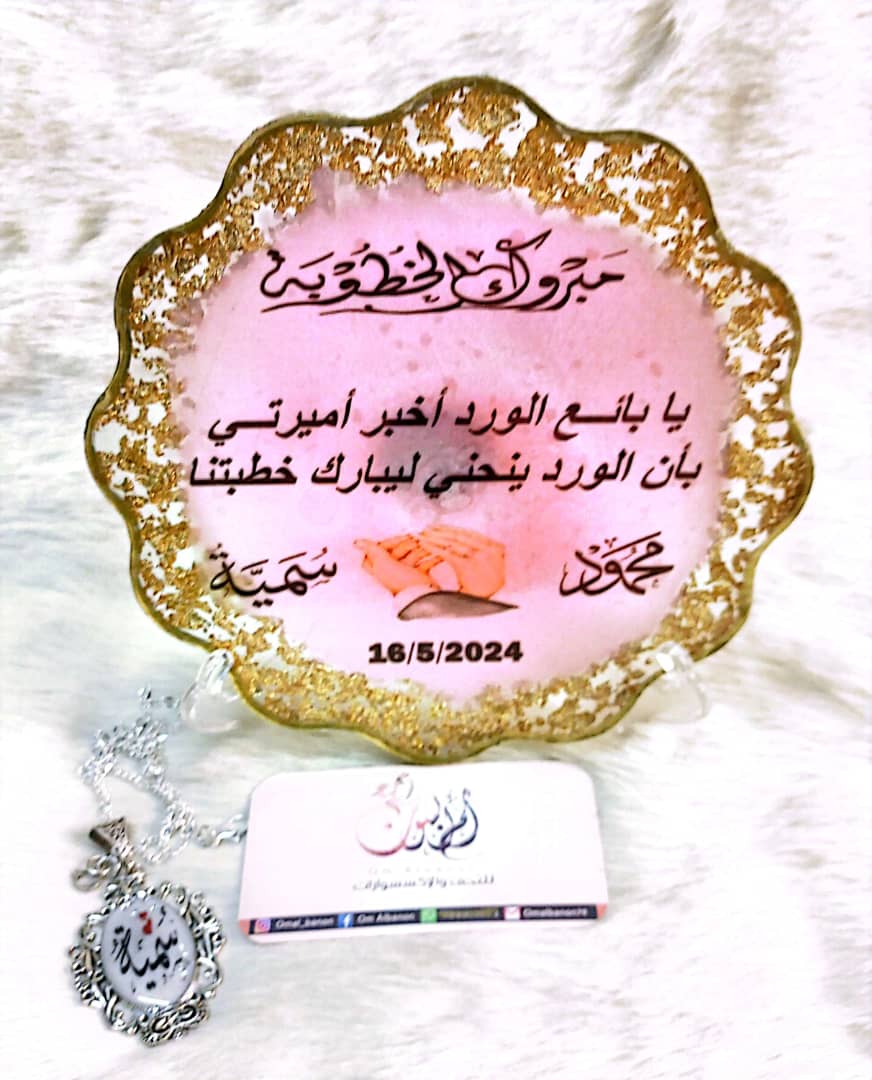 مبروك الخطوبة
يا بائــع الورد أخبر أميرتــي
بأن الورد ينحني ليبارك خطبتنا
محمود سُمَيَّةُ
16/5/2024
أم البنون
للتحف والإكسسوارات
Omal_banon Om Albanon Omalbanon78
سمية